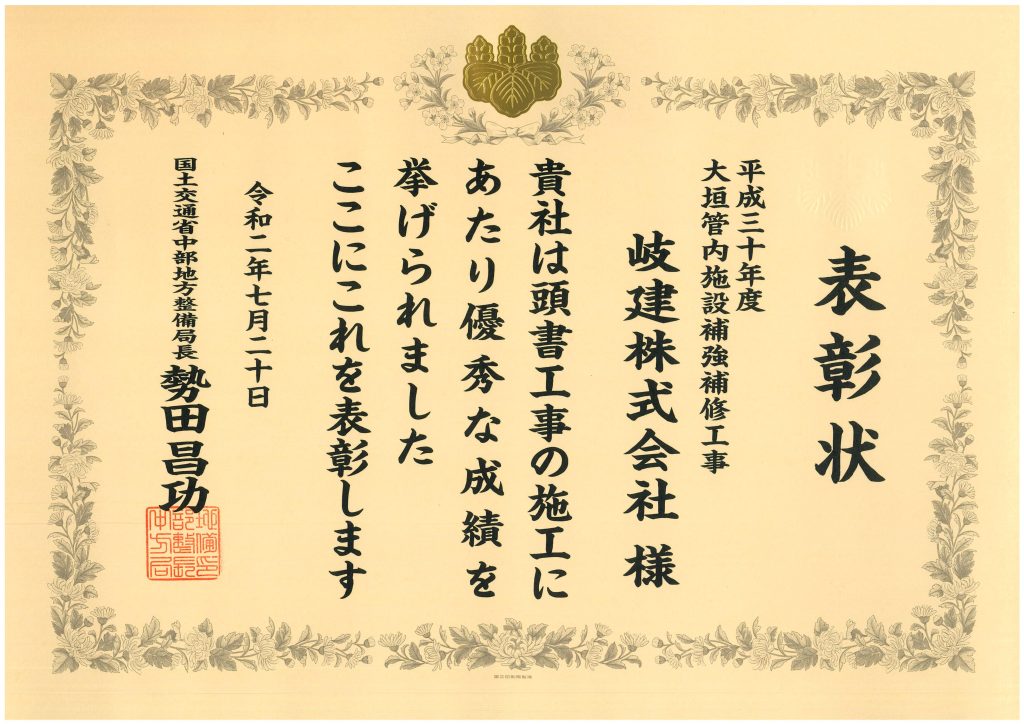 表彰状
平成三十年度
大垣管内施設補強補修工事
岐建株式会社 様
貴社は頭書工事の施工に
あたり優秀な成績を
挙げられました
ここにこれを表彰します
令和二年七月二十日
国土交通省中部地方整備局長 勢田昌功